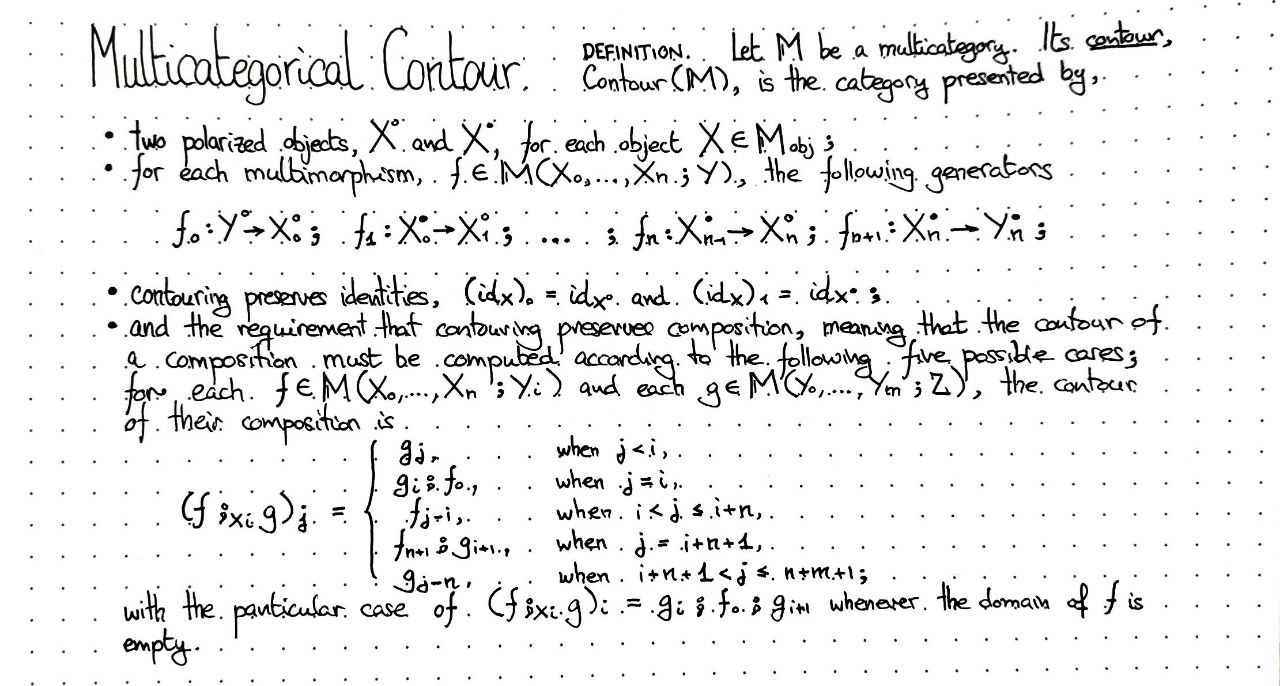 Multicategorical Contour.
DEFINITION. Let M be a multicategory. Its contour,
Contour(M), is the category presented by,
• two polarized objects, X° and X•, for each object X ∈ M_obj ;
• for each multimorphism, f ∈ M(X₀,...,Xₙ ; Y), the following generators
f₀ : Y° → X₀° ; f₁ : X₀• → X₁° ; .... ; fₙ : Xₙ₋₁• → Xₙ° ; fₙ₊₁ : Xₙ• → Yₙ• ;
• contouring preserves identities, (id_X)₀ = id_X° and (id_X)₁ = id_X• ;
• and the requirement that contouring preserves composition, meaning that the contour of
a composition must be computed according to the following five possible cases;
for each f ∈ M(X₀,...,Xₙ ; Yᵢ) and each g ∈ M(Y₀,...,Yₘ ; Z), the contour
of their composition is
(f ⨟_Xᵢ g)ⱼ = { gⱼ, when j < i,
gᵢ ⨟ f₀, when j = i,
fⱼ₋ᵢ, when i < j ≤ i+n,
fₙ₊₁ ⨟ gᵢ₊₁, when j = i+n+1,
gⱼ₋ₙ, when i+n+1 < j ≤ n+m+1;
with the particular case of (f ⨟_Xᵢ g)ᵢ = gᵢ ⨟ f₀ ⨟ gᵢ₊₁ whenever the domain of f is
empty.